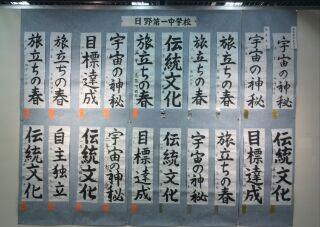 日野第一中学校
宇宙の神秘
宇宙の神秘
旅立ちの春
旅立ちの春
伝統文化
旅立ちの春
宇宙の神秘
目標達成
旅立ちの春
旅立ちの春
伝統文化
目標達成
旅立ちの春
宇宙の神秘
伝統文化
目標達成
宇宙の神秘
伝統文化
自主独立
伝統文化